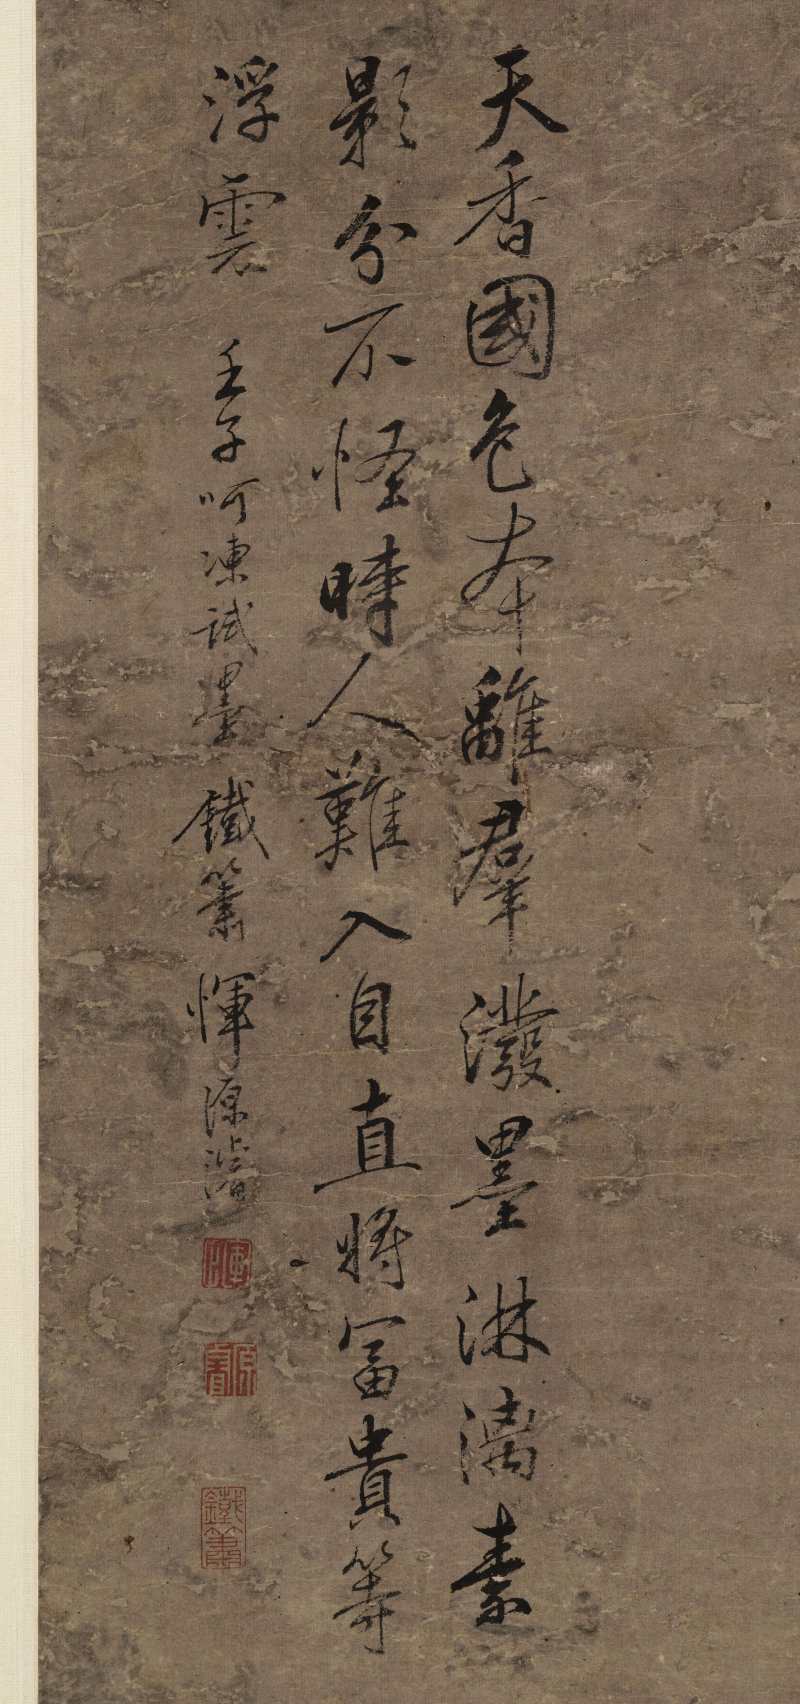 天香國色本離群潑墨淋漓素
影分不怪時人難入目直將富貴等
浮雲 壬子呵凍試墨 鐵簫 惲源濬
惲
源濬
鐵簫